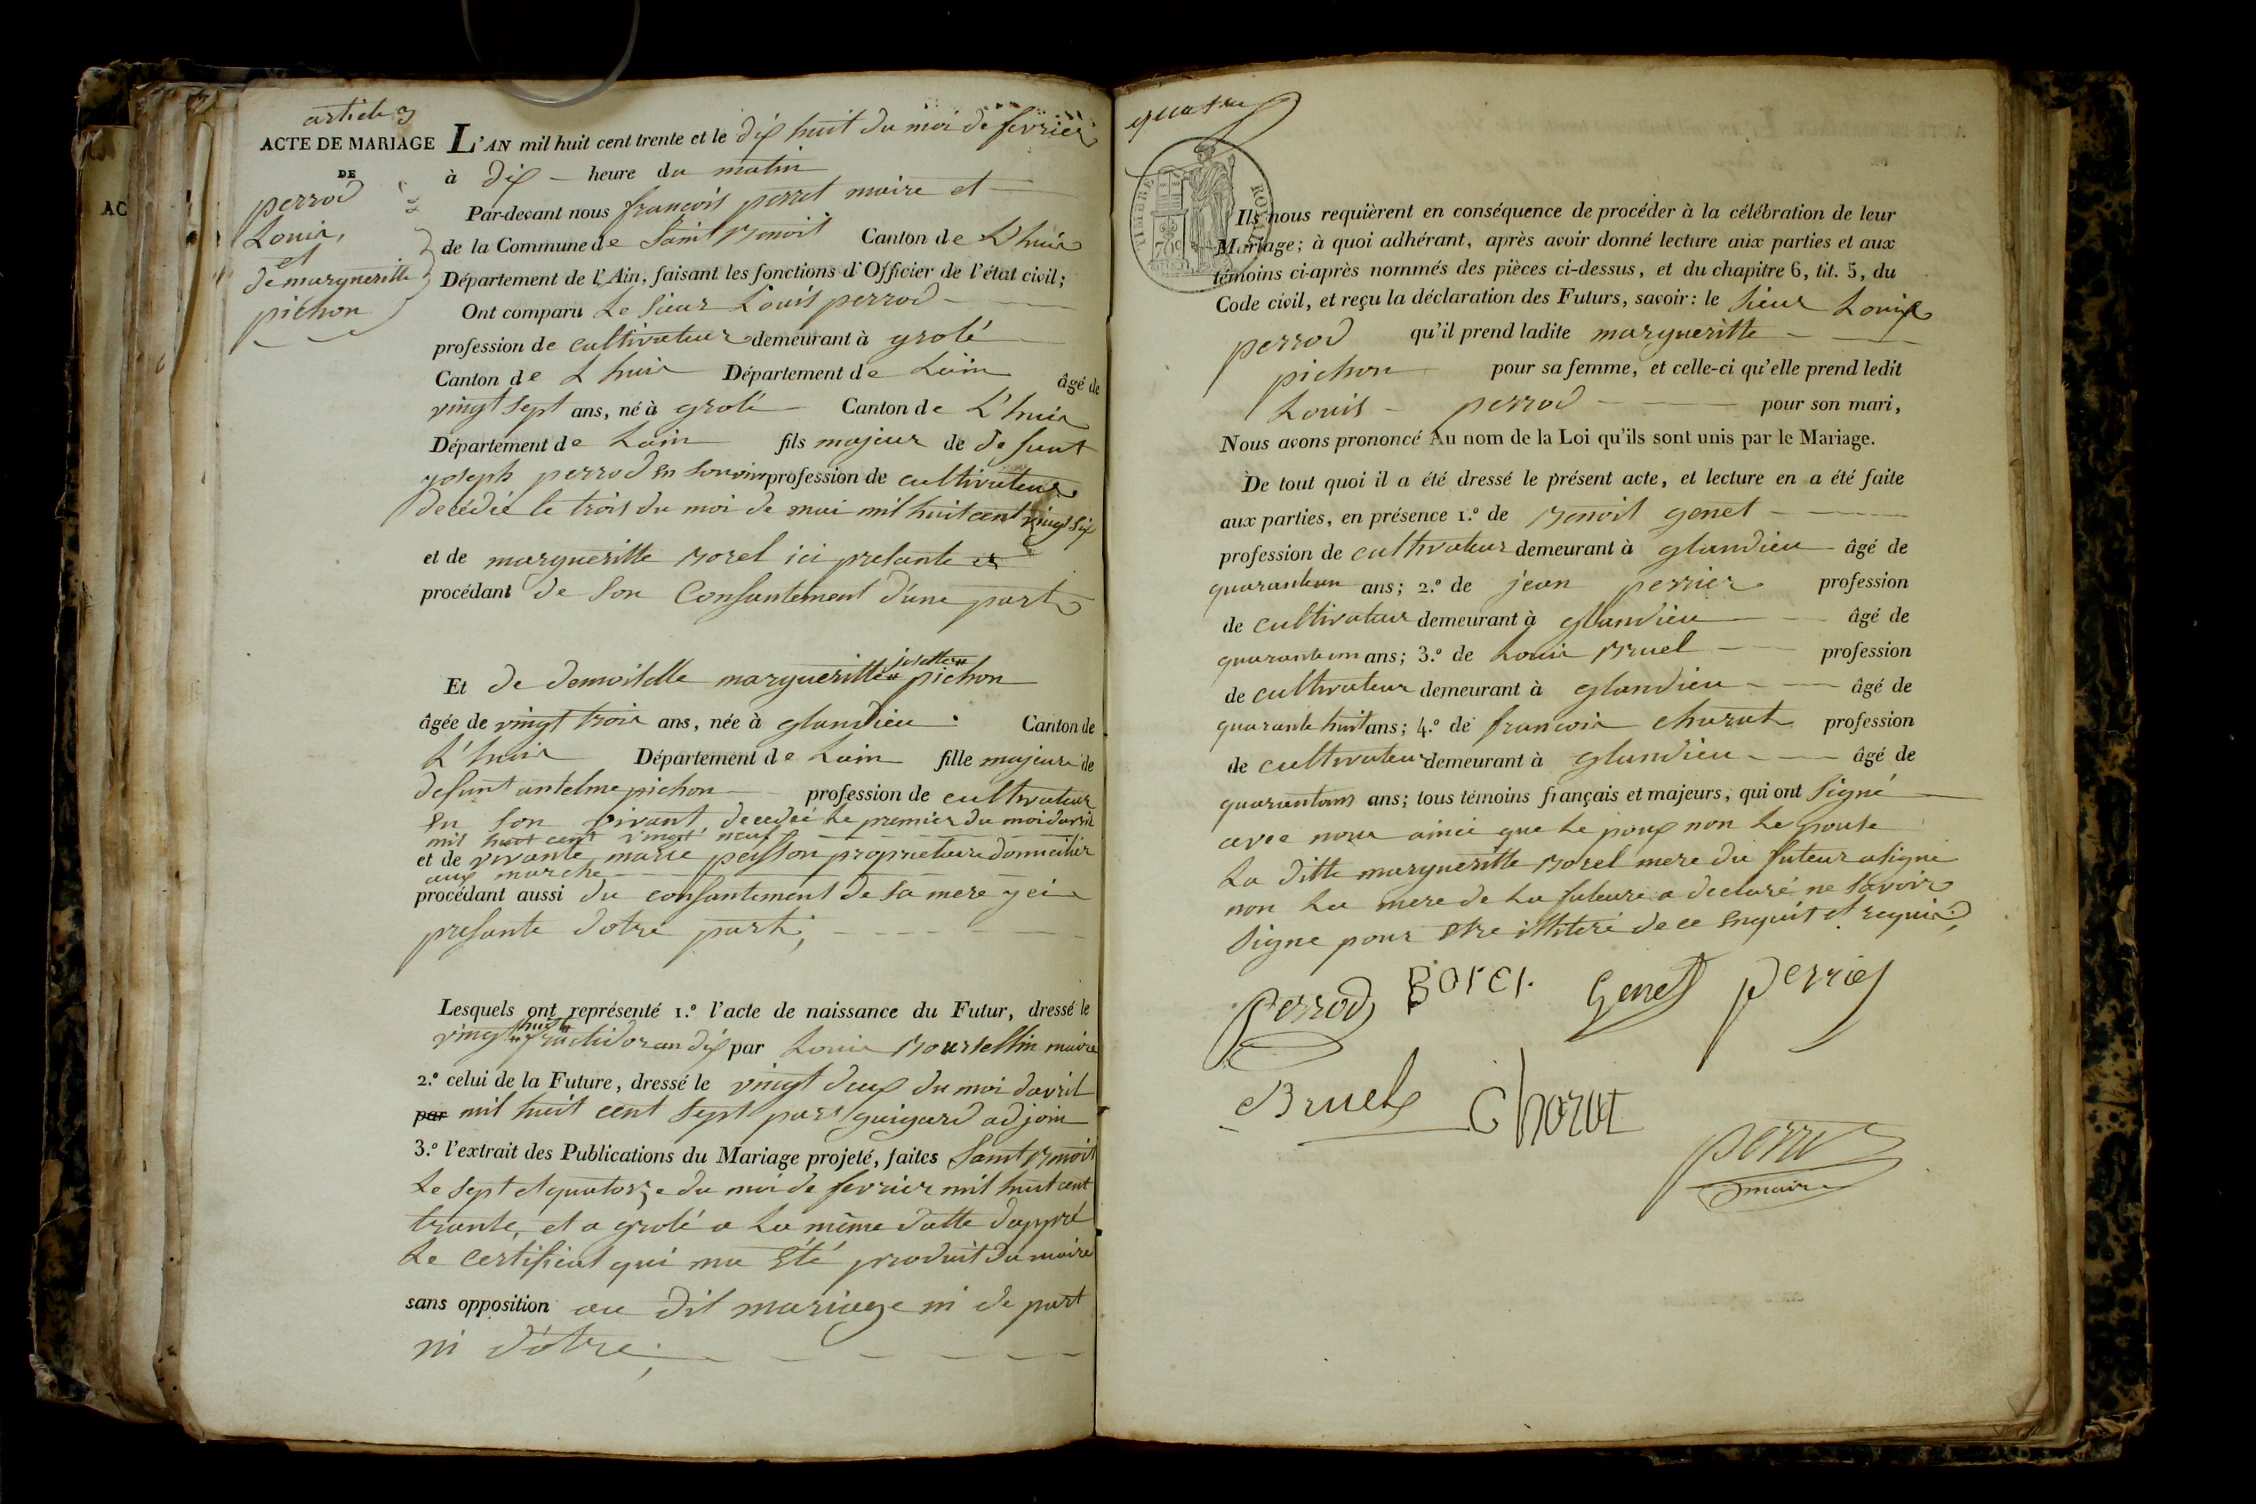 article 3
ACTE DE MARIAGE
DE
perrod
Louis,
et
de margueritte
pichon
L'AN mil huit cent trente et le dix huit du moi de fevrier
à dix heure du matin
Par-devant nous françois perret maire et
de la Commune de Saint Benoit Canton de L'huis
Département de l'Ain, faisant les fonctions d'Officier de l'état civil;
Ont comparu Le Sieur Louis perrod
profession de cultivateur demeurant à grolé
Canton de L huis Département de Lain âgé de
vingt sept ans, né à grolé Canton de L'huis
Département de Lain fils majeur de defunt
joseph perrod en son vivant profession de cultivateur
decédée le trois du moi de mai mil huit cent vingt six
et de margueritte Borel ici presante et
procédant de son Consantement d'une part
Et de demoiselle margueritte josette pichon
âgée de vingt trois ans, née à glandieu Canton de
L'huis Département de Lain fille majeure de
defunt antelme pichon profession de cultivateur
en son vivant decedée le premier du moi davril
mil huit cent vingt neuf
et de vivante marie peysson proprietaire domicilier
aux marche
procédant aussi du consantement de sa mere y ci
presante dotre part;
Lesquels ont représenté 1.º l'acte de naissance du Futur, dressé le
vingt huit fructidor an dix par Louis Bourtellin maire
2.º celui de la Future, dressé le vingt deux du moi davril
par mil huit cent sept par guigard adjoin
3.º l'extrait des Publications du Mariage projeté, faites Saint Benoit
Le sept et quatorze du moi de fevrier mil huit cent
trante, et a grolé a la même datte dappré
Le certificat qui ma été produit du maire
sans opposition au dit mariage ni de part
ni d'otre;
quatre
TIMBRE ROYAL
Ils nous requièrent en conséquence de procéder à la célébration de leur
Mariage; à quoi adhérant, après avoir donné lecture aux parties et aux
témoins ci-après nommés des pièces ci-dessus, et du chapitre 6, tit. 5, du
Code civil, et reçu la déclaration des Futurs, savoir: le sieur Louis
perrod qu'il prend ladite margueritte
pichon pour sa femme, et celle-ci qu'elle prend ledit
Louis perrod pour son mari,
Nous avons prononcé Au nom de la Loi qu'ils sont unis par le Mariage.
De tout quoi il a été dressé le présent acte, et lecture en a été faite
aux parties, en présence 1.º de Benoit genet
profession de cultivateur demeurant à glandieu âgé de
quarante un ans; 2.º de jean perrier profession
de cultivateur demeurant à glandieu âgé de
quarante un ans; 3.º de Louis Bruel profession
de cultivateur demeurant à glandieu âgé de
quarante huit ans; 4.º de françois charat profession
de cultivateur demeurant à glandieu âgé de
ans; tous témoins français et majeurs, qui ont signé
avec nous ainci que le poux non le pouse
La ditte margueritte Borel mere du futeur a signe
non la mere de la future a declaré ne savoir
signe pour etre illiteré de ce enquit et requis,
Perrod Borel Genet perrier
Bruel Charat
perret
maire